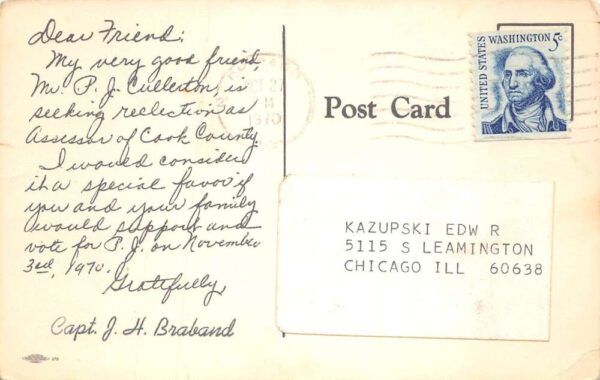 Dear Friend:
My very good friend,
Mr. P. J. Cullerton, is
seeking reelection as
Assessor of Cook County.
I would consider
it a special favor if
you and your family
would support and
vote for P. J. on November
3rd, 1970.
Gratefully,
Capt. J. H. Braband
OCT 27
1970
Post Card
UNITED STATES
WASHINGTON 5¢
KAZUPSKI EDW R
5115 S LEAMINGTON
CHICAGO ILL 60638